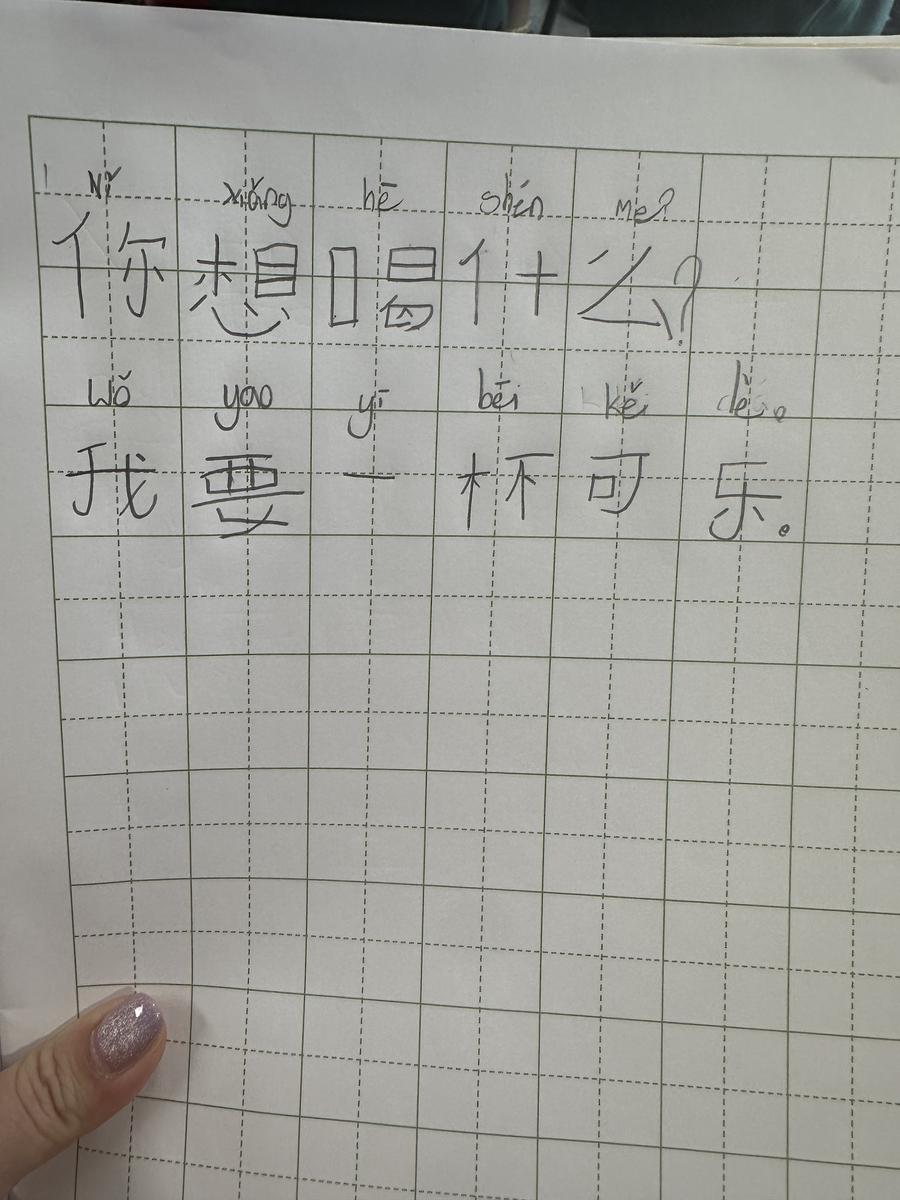 Nǐ xiǎng hē shén me?
你想喝什么?
Wǒ yao yī bēi kě lè。
我要一杯可乐。